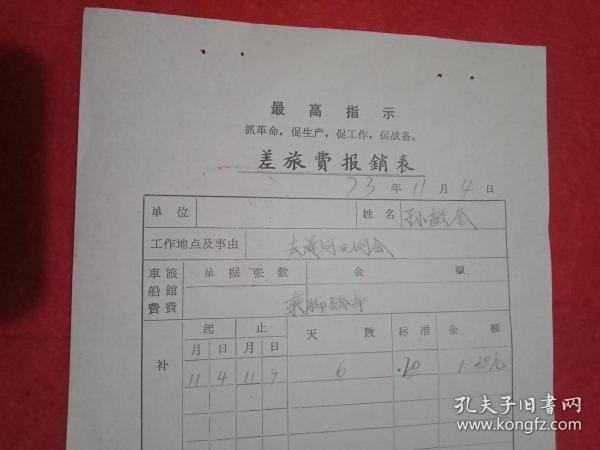 最高指示
抓革命，促生产，促工作，促战备。
差旅費报銷表
73 年 11 月 4 日
单位 姓名
工作地点及事由 去 开例会
車船費 旅館費 单据张数 金額
补 起 止 天数 标准 金額
月 日 月 日
11 4 11 9 6 .20 1.20元
孔夫子旧书网
www.kongfz.com